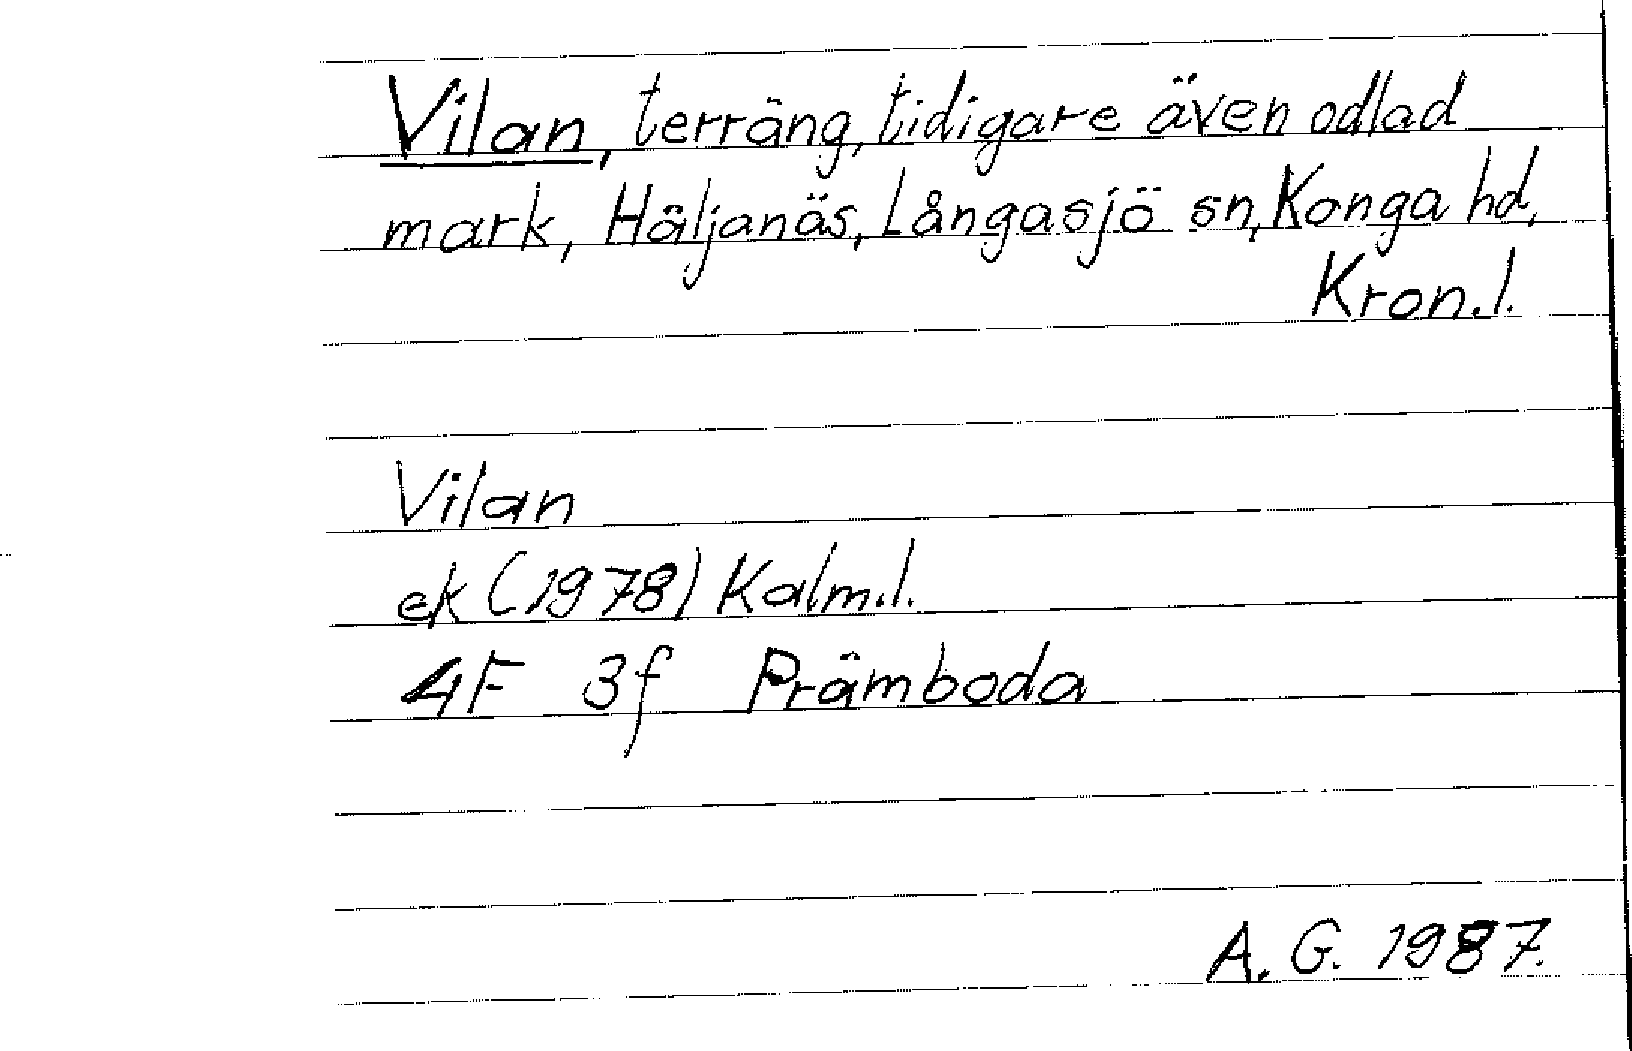 Vilan, terräng, tidigare även odlad
mark, Häljanäs, Långasjö sn, Konga hd,
Kron.l.
Vilan
ek (1978) Kalm.l.
4F 3f Främboda
A. G. 1987.